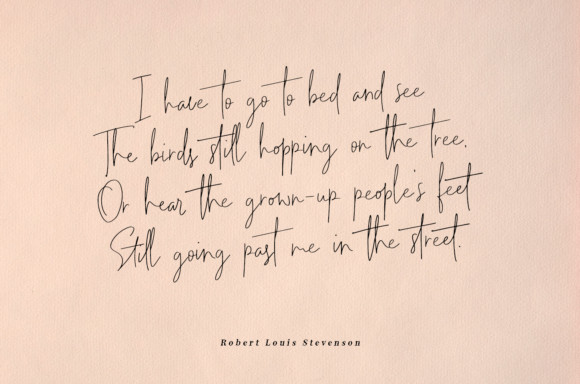 I have to go to bed and see
The birds still hopping on the tree.
Or hear the grown-up people's feet
Still going past me in the street.
Robert Louis Stevenson